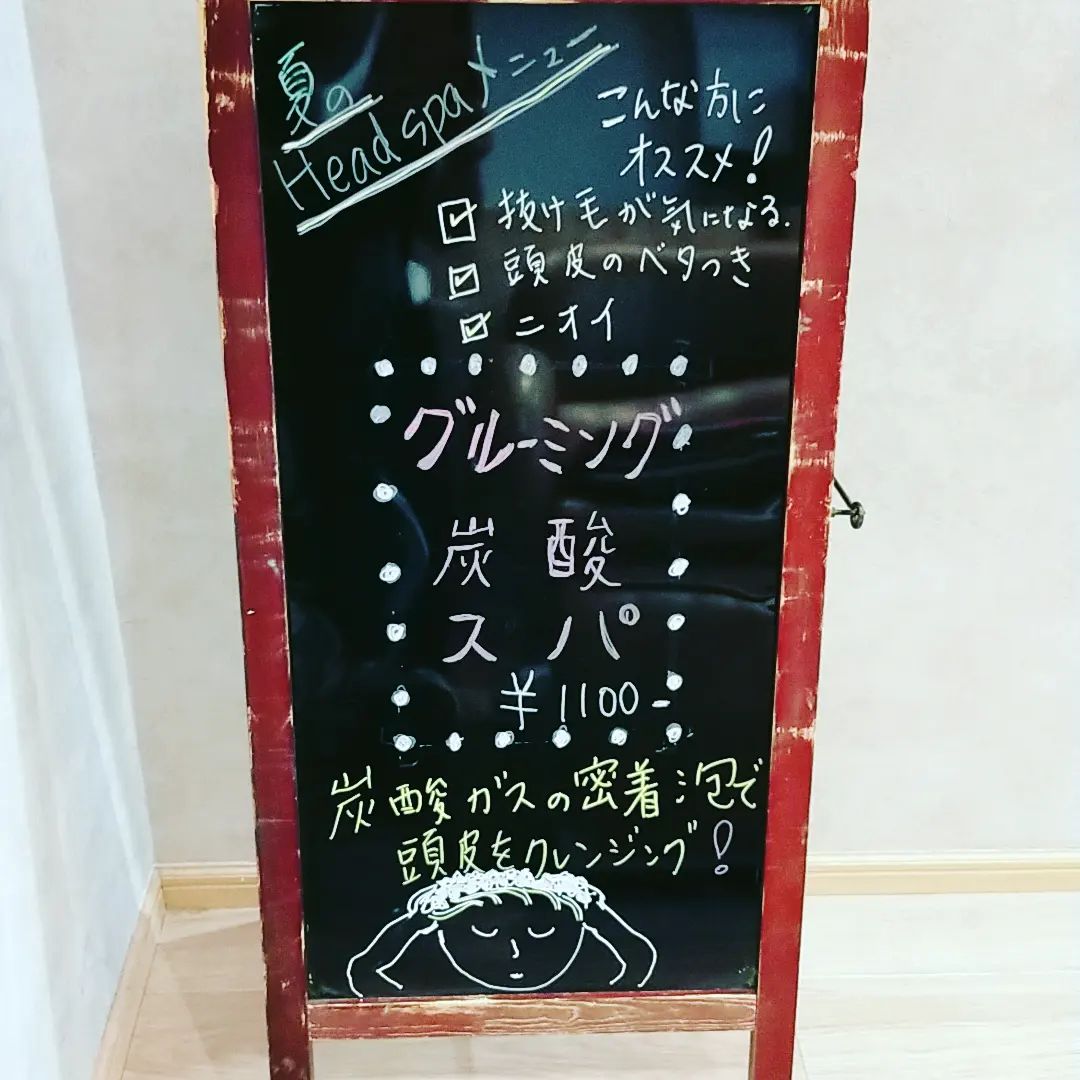 夏の
Head spa メニュー
こんな方に
オススメ!
☑ 抜け毛が気になる.
☑ 頭皮のベタつき
☑ ニオイ
グルーミング
炭酸
スパ
¥1100-
炭酸ガスの密着泡で
頭皮をクレンジング!